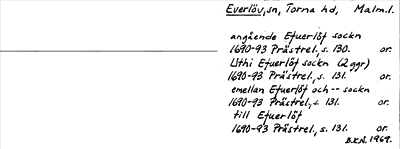 Everlöv, sn, Torna hd, Malm.l.
angående Efuerlöf sockn
1690-93 Prästrel., s. 130. or.
Uthi Efuerlöf sockn (2 ggr)
1690-93 Prästrel., s. 131. or.
emellan Efuerlöf och -- sockn
1690-93 Prästrel., s. 131. or.
till Efuerlöf
1690-93 Prästrel., s. 131. or.
B.E.Å. 1969.